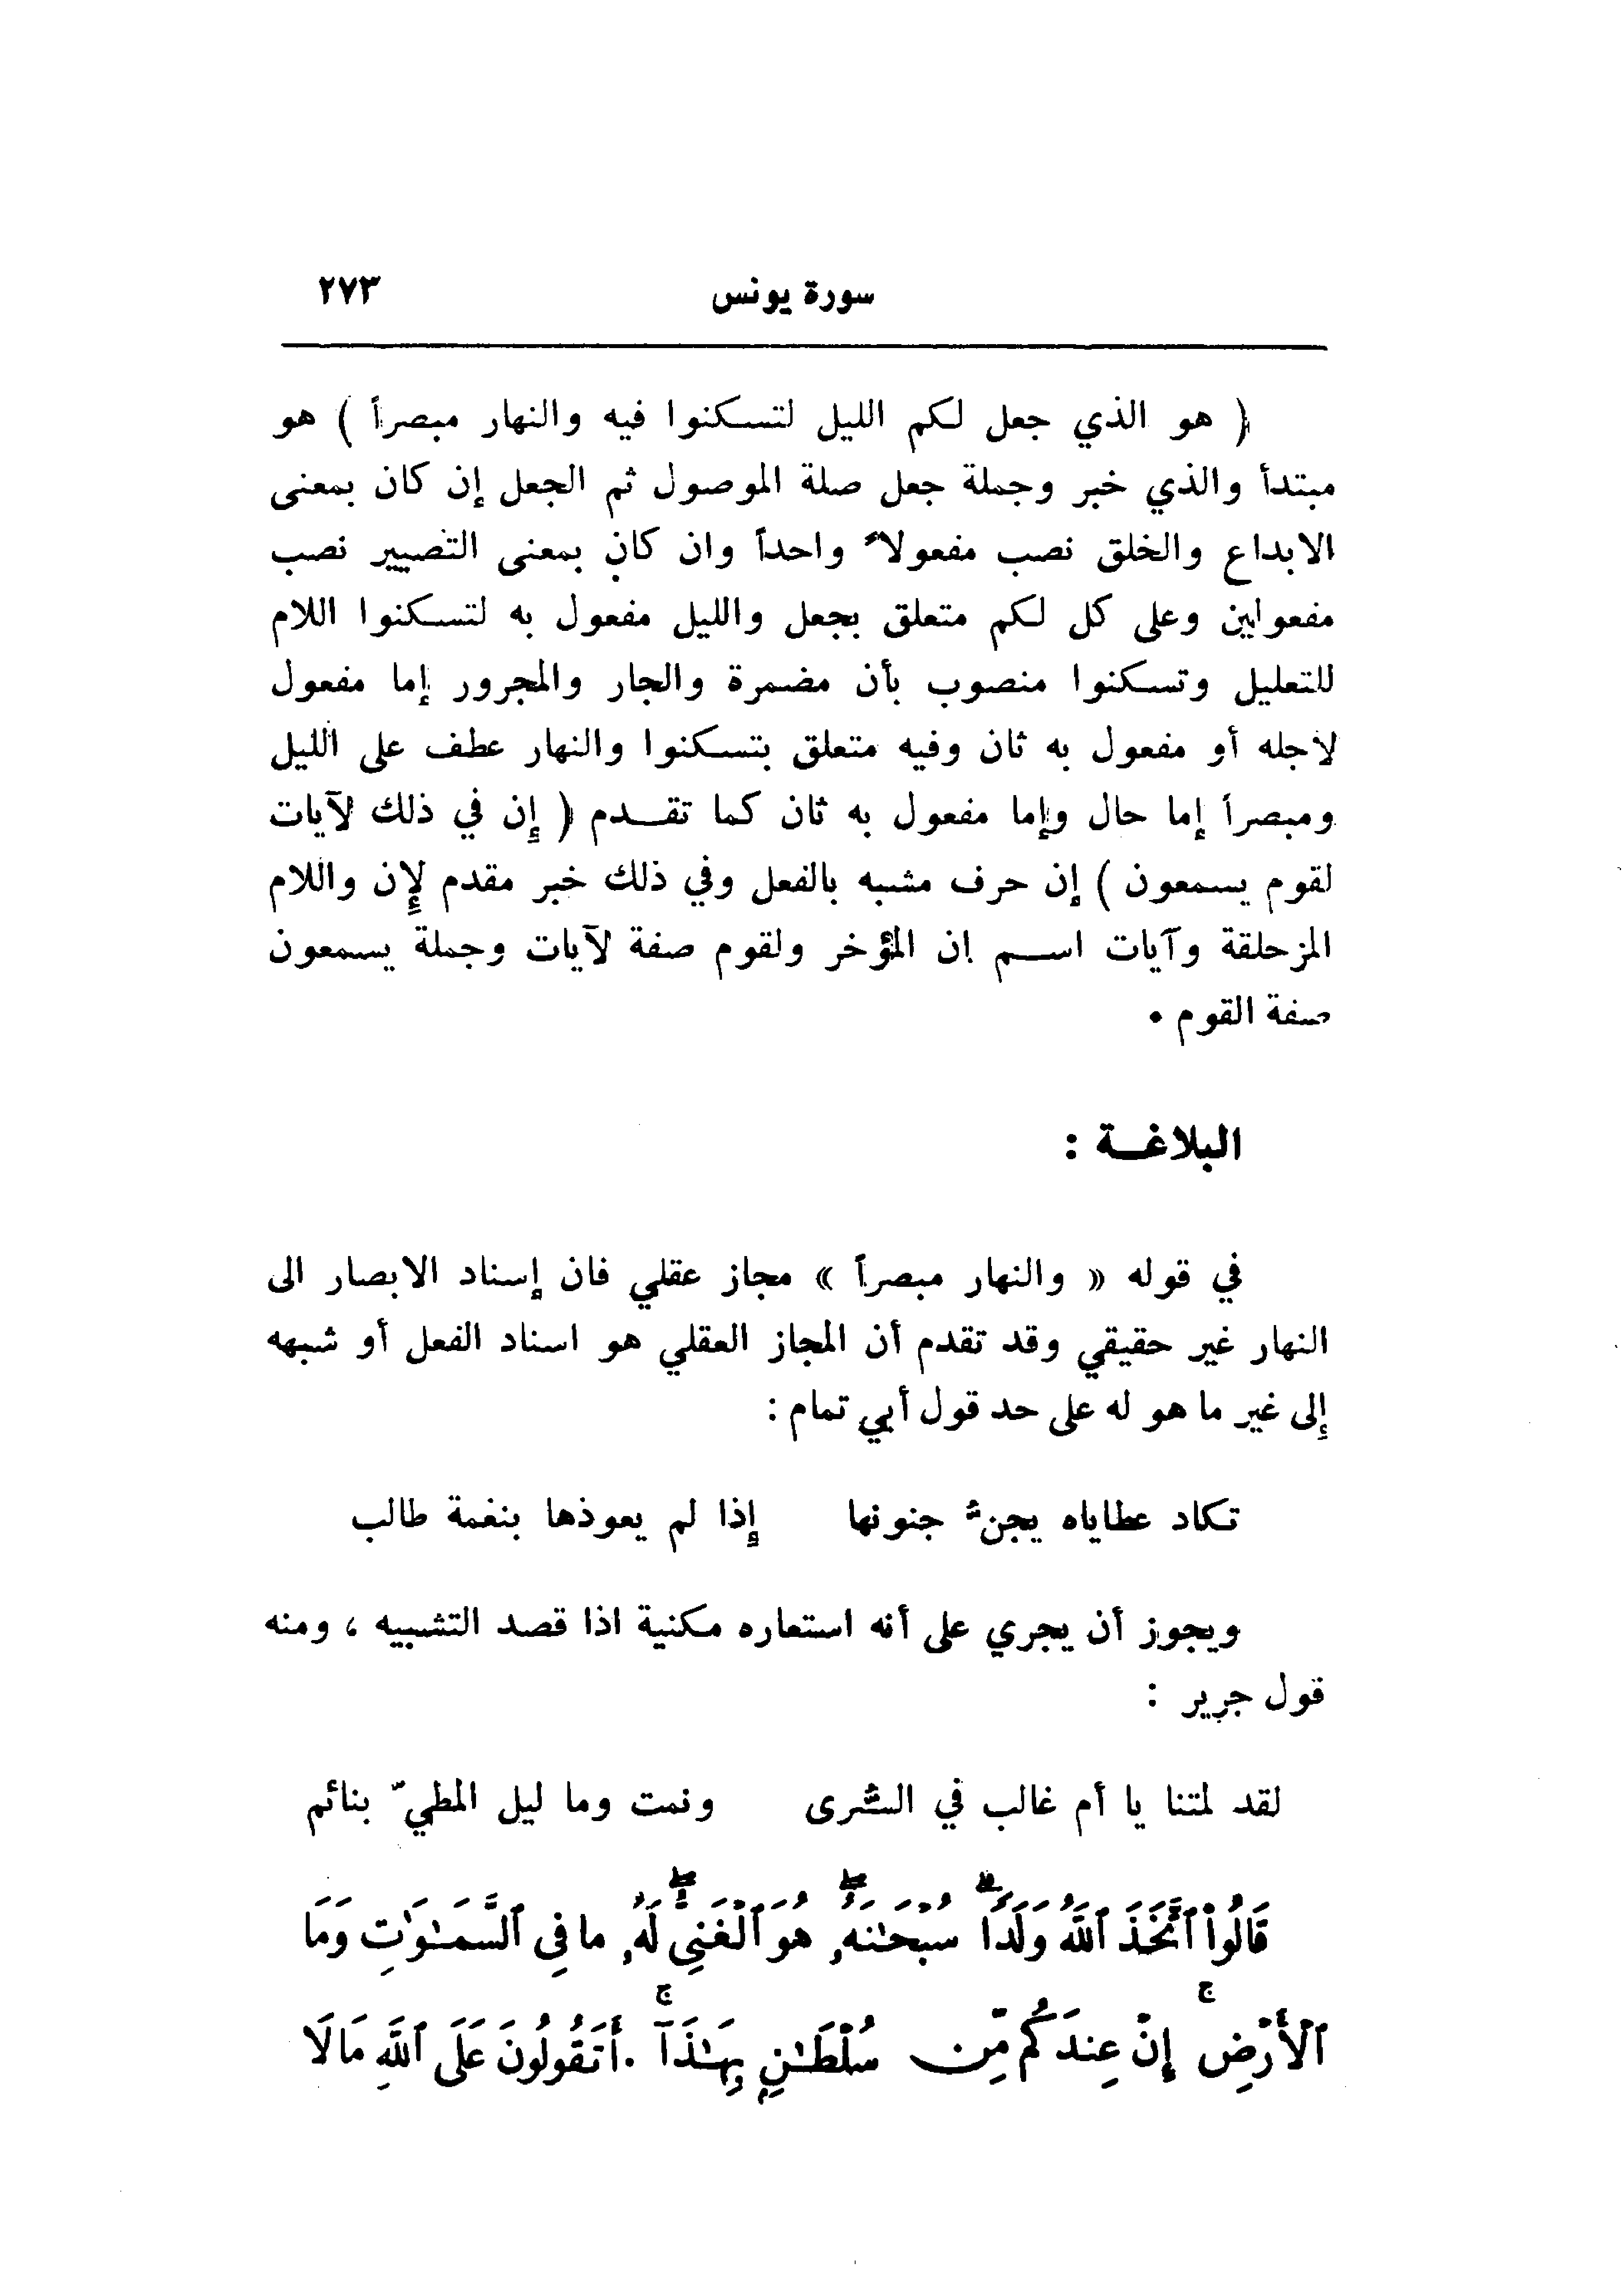 سورة يونس ٢٧٣
( هو الذي جعل لكم الليل لتسكنوا فيه والنهار مبصراً ) هو
مبتدأ والذي خبر وجملة جعل صلة الموصول ثم الجعل إن كان بمعنى
الابداع والخلق نصب مفعولاً واحداً وان كان بمعنى التصيير نصب
مفعولين وعلى كل لكم متعلق بجعل والليل مفعول به لتسكنوا اللام
للتعليل وتسكنوا منصوب بأن مضمرة والجار والمجرور إما مفعول
لأجله أو مفعول به ثان وفيه متعلق بتسكنوا والنهار عطف على الليل
ومبصراً إما حال وإما مفعول به ثان كما تقدم ( إن في ذلك لآيات
لقوم يسمعون ) إن حرف مشبه بالفعل وفي ذلك خبر مقدم لإن واللام
المزحلقة وآيات اسم إن المؤخر ولقوم صفة لآيات وجملة يسمعون
صفة القوم .
البلاغة :
في قوله « والنهار مبصراً » مجاز عقلي فان إسناد الابصار الى
النهار غير حقيقي وقد تقدم أن المجاز العقلي هو اسناد الفعل أو شبهه
إلى غير ما هو له على حد قول أبي تمام :
تكاد عطاياه يجنّ جنونها إذا لم يعوذها بنغمة طالب
ويجوز أن يجري على أنه استعاره مكنية اذا قصد التشبيه ، ومنه
قول جرير :
لقد لمتنا يا أم غالب في السُّرى ونمت وما ليل المطيّ بنائم
قَالُواْ ٱتَّخَذَ ٱللَّهُ وَلَدًاۗ سُبْحَٰنَهُۥۖ هُوَ ٱلْغَنِىُّۖ لَهُۥ مَا فِى ٱلسَّمَٰوَٰتِ وَمَا
ٱلْأَرْضِۚ إِنْ عِندَكُم مِّن سُلْطَٰنٍۭ بِهَٰذَآۚ أَتَقُولُونَ عَلَى ٱللَّهِ مَالَا